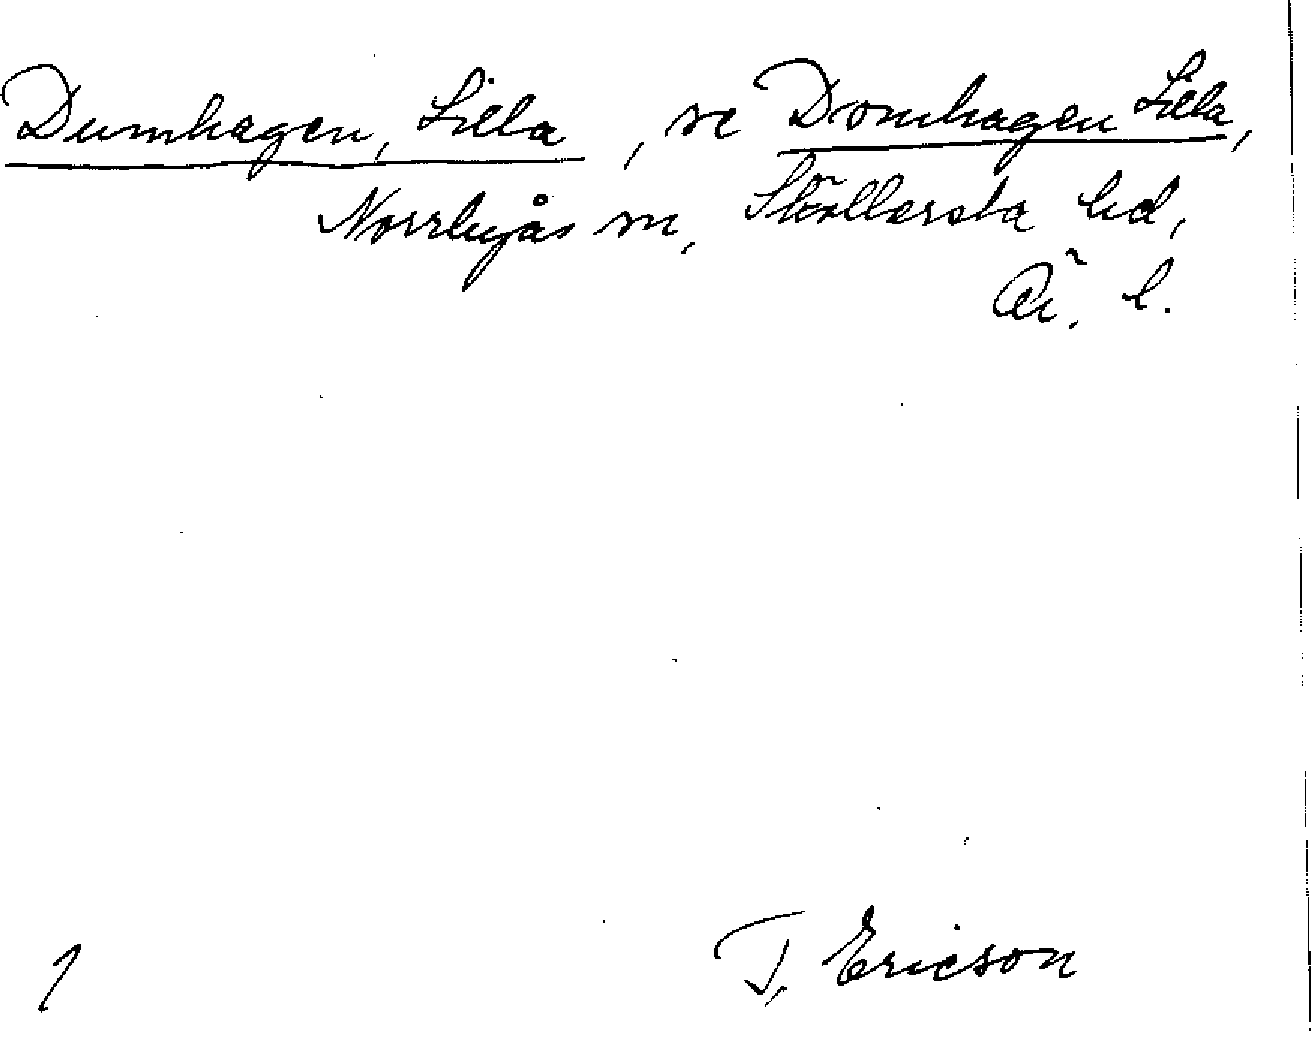 Dumhagen, Lilla, se Domhagen Lilla,
Norrbyås sn, Sköllersta hd,
Ör. l.
T. Ericson
1